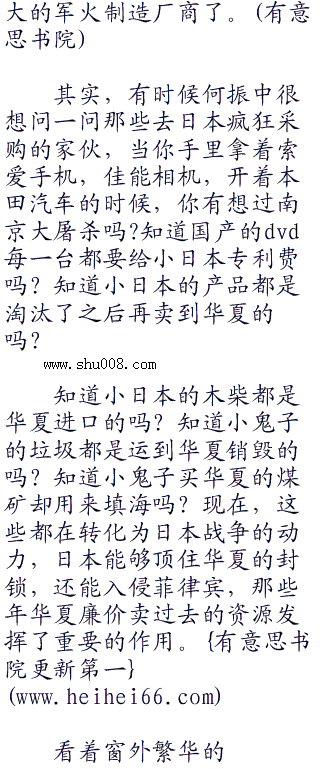 大的军火制造厂商了。(有意
思书院)
其实，有时候何振中很
想问一问那些去日本疯狂采
购的家伙，当你手里拿着索
爱手机，佳能相机，开着本
田汽车的时候，你有想过南
京大屠杀吗?知道国产的dvd
每一台都要给小日本专利费
吗？知道小日本的产品都是
淘汰了之后再卖到华夏的
吗？
www.shu008.com
知道小日本的木柴都是
华夏进口的吗？知道小鬼子
的垃圾都是运到华夏销毁的
吗？知道小鬼子买华夏的煤
矿却用来填海吗？现在，这
些都在转化为日本战争的动
力，日本能够顶住华夏的封
锁，还能入侵菲律宾，那些
年华夏廉价卖过去的资源发
挥了重要的作用。{有意思书
院更新第一}
(www.heihei66.com)
看着窗外繁华的